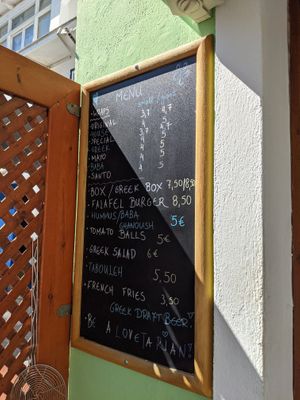 MENU
small / giant
· WRAPS
· ORIGINAL 3,7 4,7
· HOUSE
· SPECIAL 4 5
· GREEK 4 5
· MAYO 4 5
· BABA 4 5
· SANTO 4 5
· BOX / GREEK BOX 7,50/8,50
· FALAFEL BURGER 8,50
· HUMMUS/BABA
GHANOUSH 5€
· TOMATO BALLS 5€
· GREEK SALAD 6€
· TABOULEH 5,50
· FRENCH FRIES 3,50
GREEK DRAFT BEER!
· BE A LOVETARIAN!